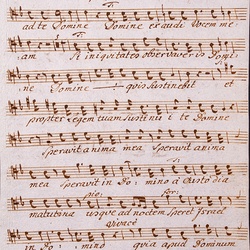 ad te Domine Domine exaudi Vocem me
am Si iniquitates observaveris Domi
ne Domine quis sustinebit et
propter legem tuam sustinui te Domine
Speravit anima mea Speravit anima
mea Speravit in Do: mino a Custodia
matutina usque ad noctem Speret Israel
in Do: mino quia apud Dominum